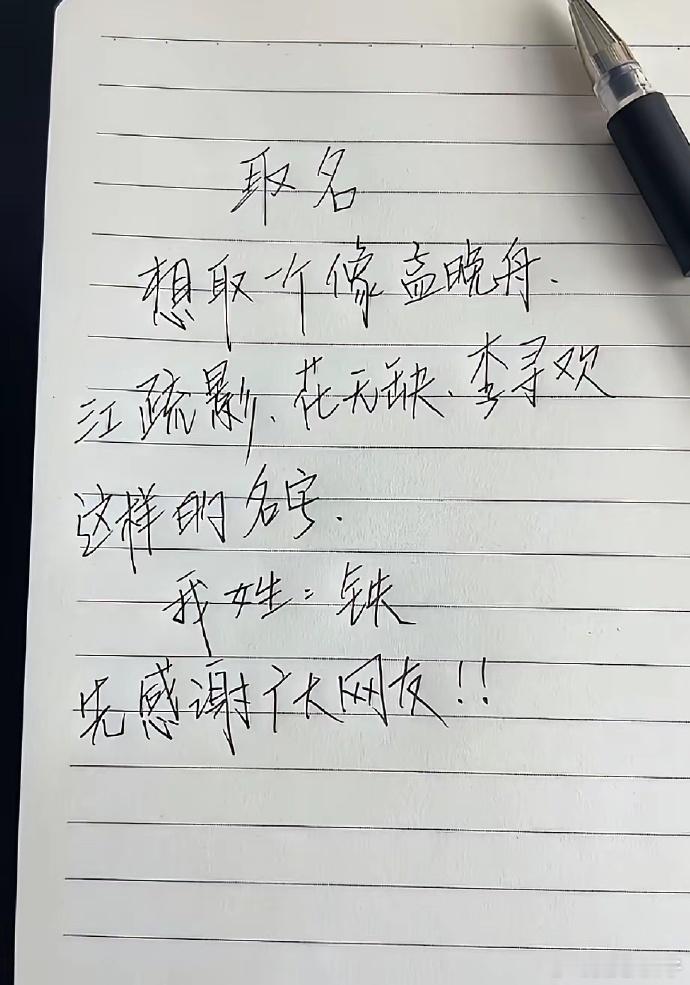 取名
想取一个像孟晚舟、
江疏影、花无缺、李寻欢
这样的名字.
我姓：铁
先感谢广大网友!!